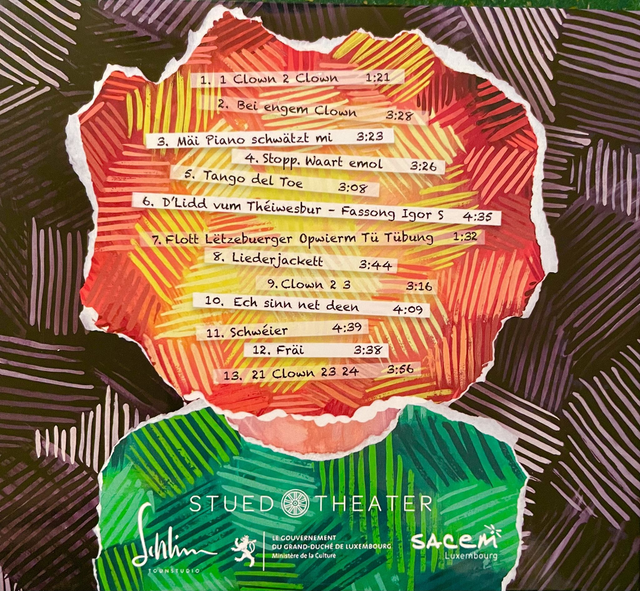 1. 1 Clown 2 Clown 1:21
2. Bei engem Clown 3:28
3. Mäi Piano schwätzt mi 3:23
4. Stopp. Waart emol 3:26
5. Tango del Toe 3:08
6. D'Lidd vum Théiwesbur - Fassong Igor S 4:35
7. Flott Lëtzebuerger Opwierm Tü Tübung 1:32
8. Liederjackett 3:44
9. Clown 2 3 3:16
10. Ech sinn net deen 4:09
11. Schwéier 4:39
12. Fräi 3:38
13. 21 Clown 23 24 3:56
STUED THEATER
Schlim
TOUNSTUDIO
LE GOUVERNEMENT
DU GRAND-DUCHÉ DE LUXEMBOURG
Ministère de la Culture
sacem
Luxembourg